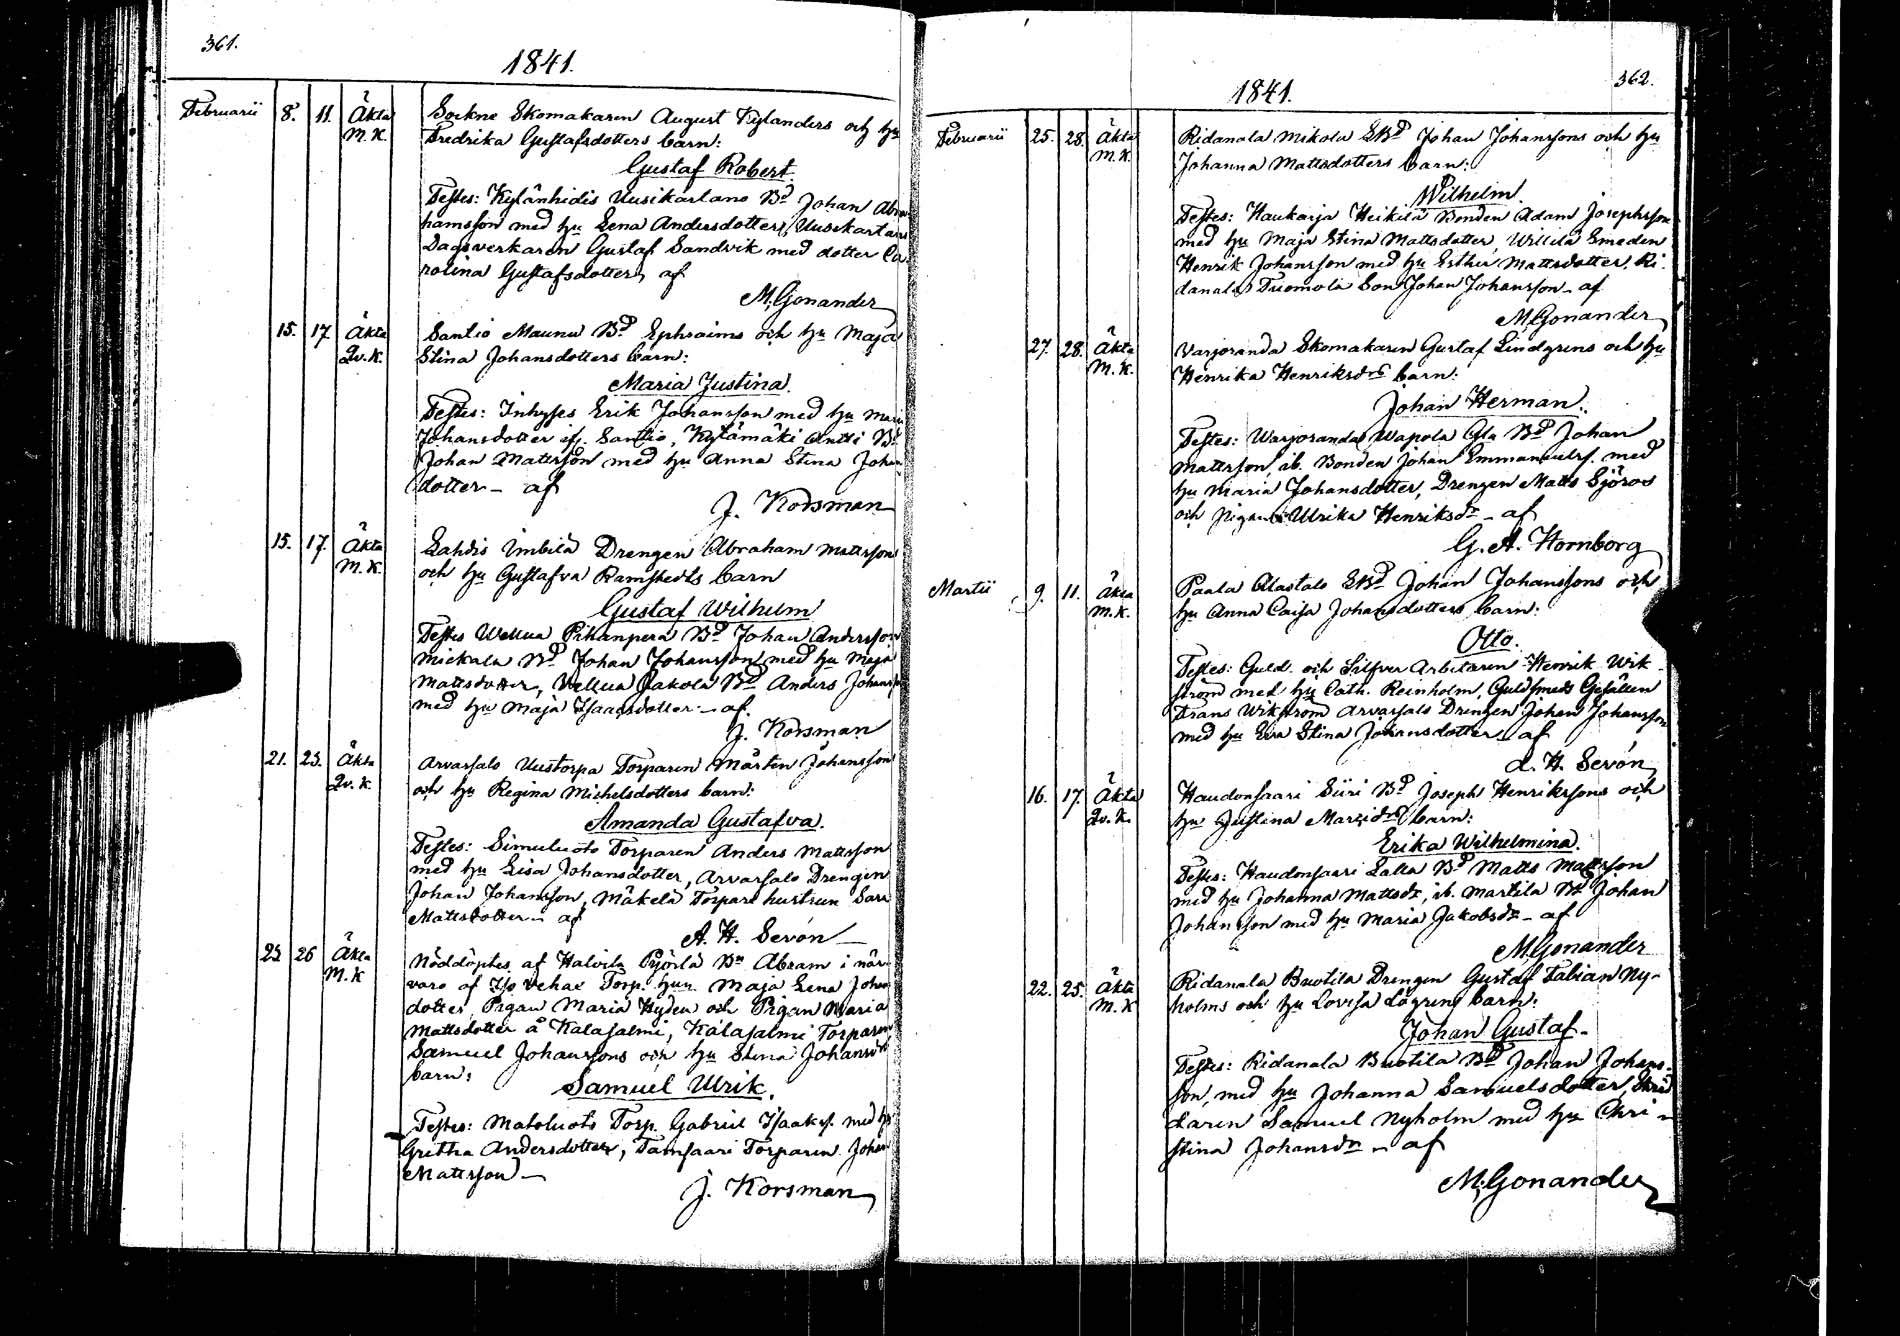 361.
1841.
Februarii 8. 11. Äkta Sockne Skomakaren August Kylanders och hu
M.K. Fredrika Gustafsdotters barn:
Gustaf Robert.
Testes: Kylänhidis Uusikartano Bd Johan Abra-
hamsson med hu Lena Andersdotter, Uusikartano
Dagsverkaren Gustaf Sandvik med dotter Ca-
rolina Gustafsdotter, af
M. Gonander
15. 17. Äkta Santio Maunu Bd Ephraims och hu Maja
Qv.K. Stina Johansdotters barn:
Maria Justina.
Testes: Inhyses Erik Johansson med hu Maria
Johansdotter ifr. Santio, Kylämäki Antti Bd
Johan Mattsson med hu Anna Stina Johans
dotter - af
J. Korsman
15. 17. Äkta Lahdis Imbilä Drengen Abraham Mattsson
M.K. och hu Gustafva Ramstedts barn
Gustaf Wilhelm
Testes Wellua Pihanpera Bd Johan Andersson
Mickala Bd Johan Johansson med hu Maja
Mattsdotter, Wellua Jakola Bd Anders Johansson
med hu Maja Isaacsdotter - af
J. Korsman
21. 23. Äkta Arvassalo Uustorpa Torparen Mårten Johansson
Qv.K. och hu Regina Michelsdotters barn:
Amanda Gustafva.
Testes: Simuluoto Torparen Anders Mattsson
med hu Lisa Johansdotter, Arvassalo Drengen
Johan Johansson, Mäkelä Torpare hustrun Sara
Mattsdotter - af
A. H. Sevón
25 26 Äkta Nöddöptes af Halvila Pyörlä Bn Abram i när-
M.K varo af Iso Vehas Torp. hun Maja Lena Johans
dotter, Pigan Maria Hyden och Pigan Maria
Mattsdotter å Kalasalmi, Kalasalmi Torparen
Samuel Johanssons och hu Stina Johansdrs
barn:
Samuel Ulrik.
Testes: Matoluoto Torp. Gabriel Isaaks. med hu
Gretha Andersdotter, Tamsaari Torparen Johan
Mattsson -
J. Korsman
362.
1841.
Februarii 25. 28. Äkta Ridanala Mikola LBd Johan Johanssons och hu
M.K. Johanna Mattsdotters barn:
Wilhelm.
Testes: Haukaija Heikilä Bonden Adam Josephsson
med hu Maja Stina Mattsdotter, Willila Smeden
Henrik Johansson med hu Esther Mattsdotter, Ri-
danala Tuomola Son Johan Johansson - af
M. Gonander
27. 28. Äkta Varjoranda Skomakaren Gustaf Lindgrens och hu
M.K. Henrika Henriksdrs barn:
Johan Herman.
Testes: Warjoranda Wapola Ala Bd Johan
Mattsson, ib. Bonden Johan Emmanuels. med
hu Maria Johansdotter, Drengen Matts Sjöroos
och pigan Ulrika Henriksdr - af
G. A. Hornborg
Martii 9. 11. Äkta Paala Alastalo LBd Johan Johanssons och
M.K. hu Anna Caisa Johansdotters barn:
Otto.
Testes: Guld- och Silfver Arbetaren Henrik Wik-
ström med hu Cath. Reinholm, Guldsmeds Gesällen
Frans Wikström Arvassalo Drengen Johan Johansson
med hu Eva Stina Johansdotter - af
A. H. Sevón
16. 17. Äkta Haudonsaari Siiri Bd Josephs Henrikssons och
Qv.K. hu Justina barn:
Erika Wilhelmina.
Testes: Haudonsaari Lalla Bd Matts Mattsson
med hu Johanna Mattsdr, ib. Martila Bd Johan
Johansson med hu Maria Jakobsdr - af
M. Gonander
22. 25. Äkta Ridanala Buotila Drengen Gustaf Fabian Ny-
M.K holms och hu Lovisa Lögrens barn:
Johan Gustaf.
Testes: Ridanala Buotila Bd Johan Johans-
son, med hu Johanna Samuelsdotter, Skräd
daren Samuel Nyholm med hu Chri-
stina Johansdr - af
M. Gonander